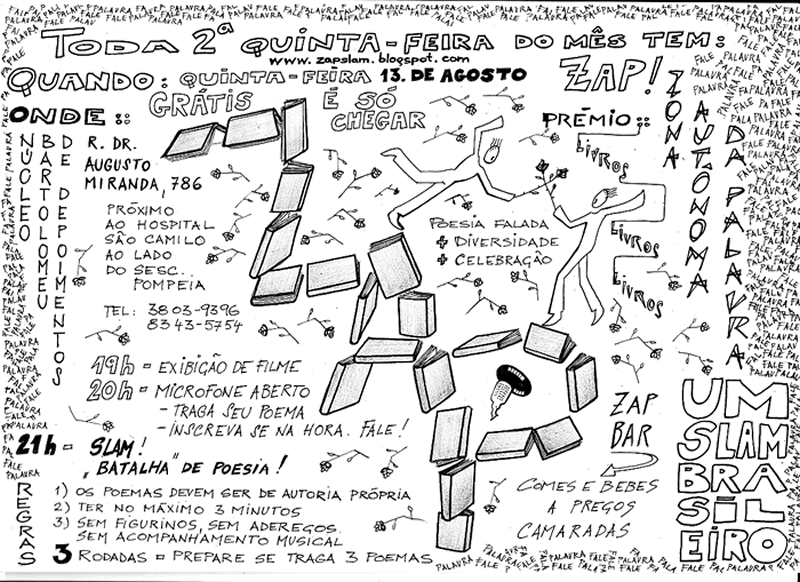 TODA 2ª QUINTA-FEIRA DO MÊS TEM:
www.zapslam.blogspot.com
QUANDO: QUINTA-FEIRA 13. DE AGOSTO
GRÁTIS É SÓ
CHEGAR
ZAP!
ZONA
AUTÔNOMA
DA PALAVRA
ONDE::
NÚCLEO
BARTOLOMEU
DE DEPOIMENTOS
R. DR.
AUGUSTO
MIRANDA, 786
PRÓXIMO
AO HOSPITAL
SÃO CAMILO
AO LADO
DO SESC..
POMPEIA
TEL: 3803-9396
8343-5754
PRÊMIO::
LIVROS
LIVROS
LIVROS
POESIA FALADA
+ DIVERSIDADE
+ CELEBRAÇÃO
19h = EXIBIÇÃO DE FILME
20h = MICROFONE ABERTO
- TRAGA SEU POEMA
- INSCREVA SE NA HORA. FALE!
21h = SLAM!
"BATALHA" DE POESIA!
ZAP
BAR
COMES E BEBES
A PREÇOS
CAMARADAS
UM
SLAM
BRA
SIL
EIRO
REGRAS
1) OS POEMAS DEVEM SER DE AUTORIA PRÓPRIA
2) TER NO MÁXIMO 3 MINUTOS
3) SEM FIGURINOS, SEM ADEREÇOS.
SEM ACOMPANHAMENTO MUSICAL
3 RODADAS = PREPARE SE TRAGA 3 POEMAS